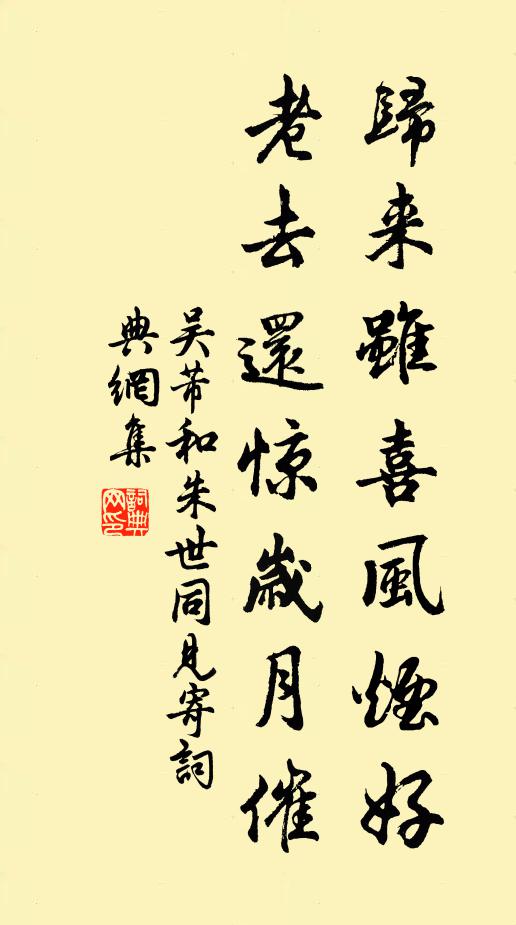 歸来雖喜風煙好
老去還惊歲月催
吴芾和朱世同見寄詞
典網集
詞典网印